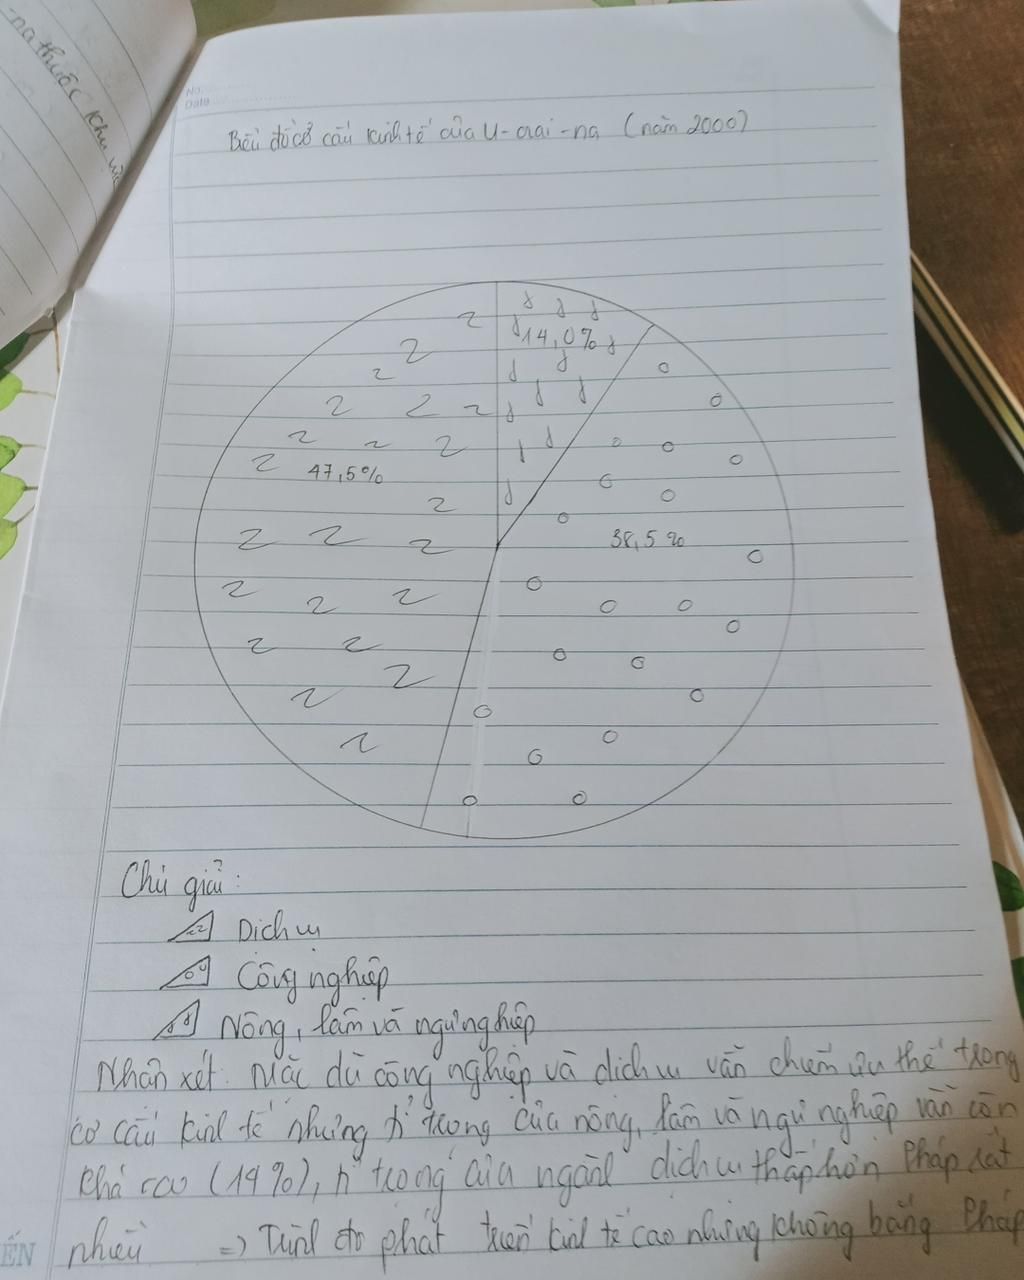 na thuộc khu vực
No.
Date
Biểu đồ cơ cấu kinh tế của U-crai-na (năm 2000)
14,0%
47,5%
38,5%
Chú giải:
Dịch vụ
Công nghiệp
Nông, lâm và ngư nghiệp
Nhận xét: Mặc dù công nghiệp và dịch vụ vẫn chiếm ưu thế trong
cơ cấu kinh tế nhưng tỉ trọng của nông, lâm và ngư nghiệp vẫn còn
khá cao (14%), tỉ trọng của ngành dịch vụ thấp hơn Pháp rất
nhiều => Trình độ phát triển kinh tế cao nhưng không bằng Pháp
ẾN